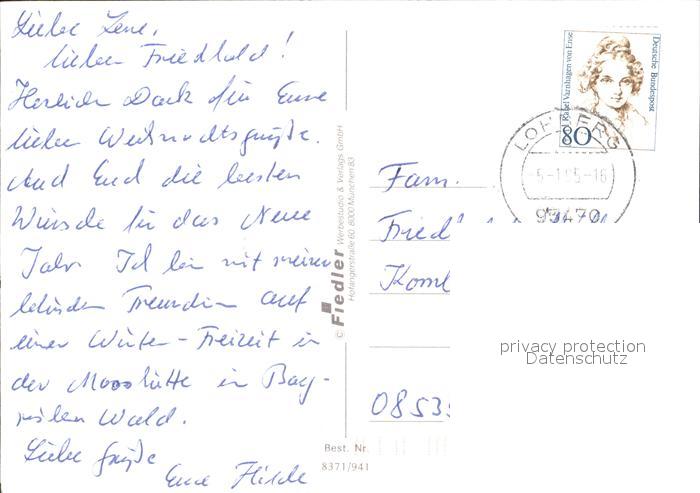 Liebe Lene,
lieber Friedhold!
Herzlichen Dank für Eure
lieben Weihnachtsgrüße.
Und Euch die besten
Wünsche für das Neue
Jahr. Ich bin mit meinen
blinden Freunden auf
einer Winter-Freizeit in
der Mooshütte im Bay-
rischen Wald.
Liebe Grüße
Eure Hilde
© Fiedler Werbestudio & Verlags GmbH
Hofangerstraße 60 8000 München 83
Best. Nr.
8371/941
Fam.
Fried
0853
Deutsche Bundespost
Rahel Varnhagen von Ense
80
LOHBERG
93470
privacy protection
Datenschutz